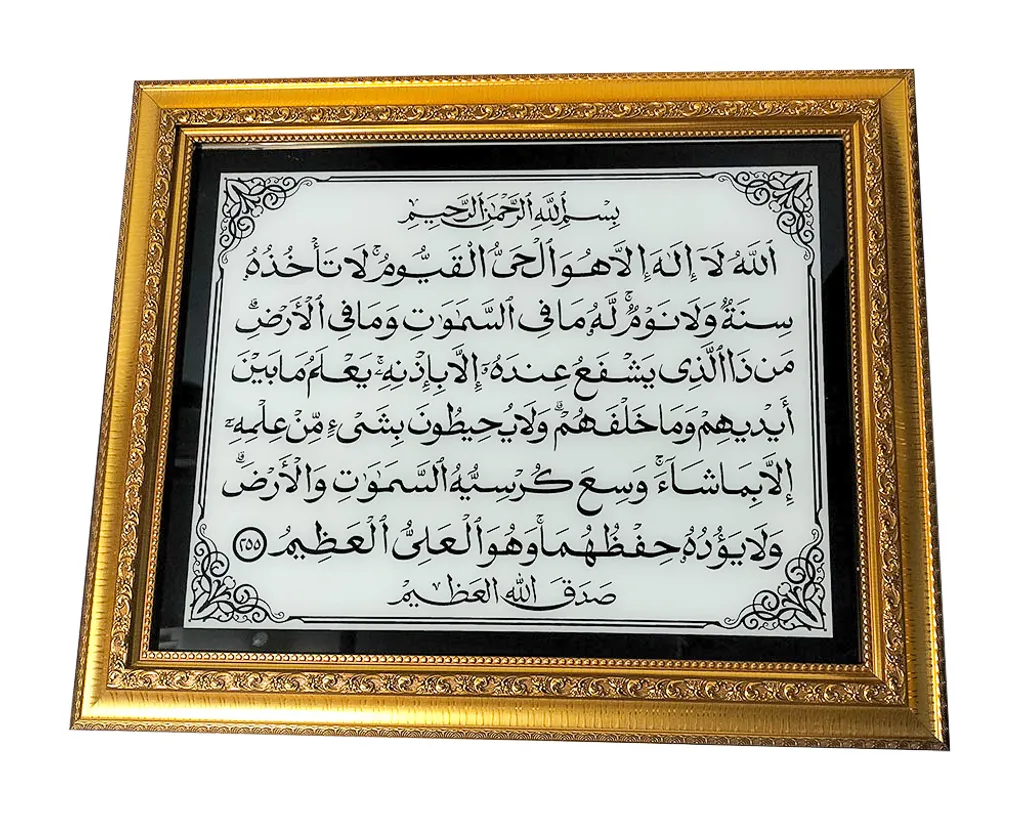 بِسْمِ ٱللَّهِ ٱلرَّحْمَٰنِ ٱلرَّحِيمِ
ٱللَّهُ لَآ إِلَٰهَ إِلَّا هُوَ ٱلْحَىُّ ٱلْقَيُّومُ ۚ لَا تَأْخُذُهُۥ
سِنَةٌ وَلَا نَوْمٌ ۚ لَّهُۥ مَا فِى ٱلسَّمَٰوَٰتِ وَمَا فِى ٱلْأَرْضِ ۗ
مَن ذَا ٱلَّذِى يَشْفَعُ عِندَهُۥٓ إِلَّا بِإِذْنِهِۦ ۚ يَعْلَمُ مَا بَيْنَ
أَيْدِيهِمْ وَمَا خَلْفَهُمْ ۖ وَلَا يُحِيطُونَ بِشَىْءٍ مِّنْ عِلْمِهِۦٓ
إِلَّا بِمَا شَآءَ ۚ وَسِعَ كُرْسِيُّهُ ٱلسَّمَٰوَٰتِ وَٱلْأَرْضَ ۖ
وَلَا يَـُٔودُهُۥ حِفْظُهُمَا ۚ وَهُوَ ٱلْعَلِىُّ ٱلْعَظِيمُ ٢٥٥
صَدَقَ اللّٰه العَظِيْم